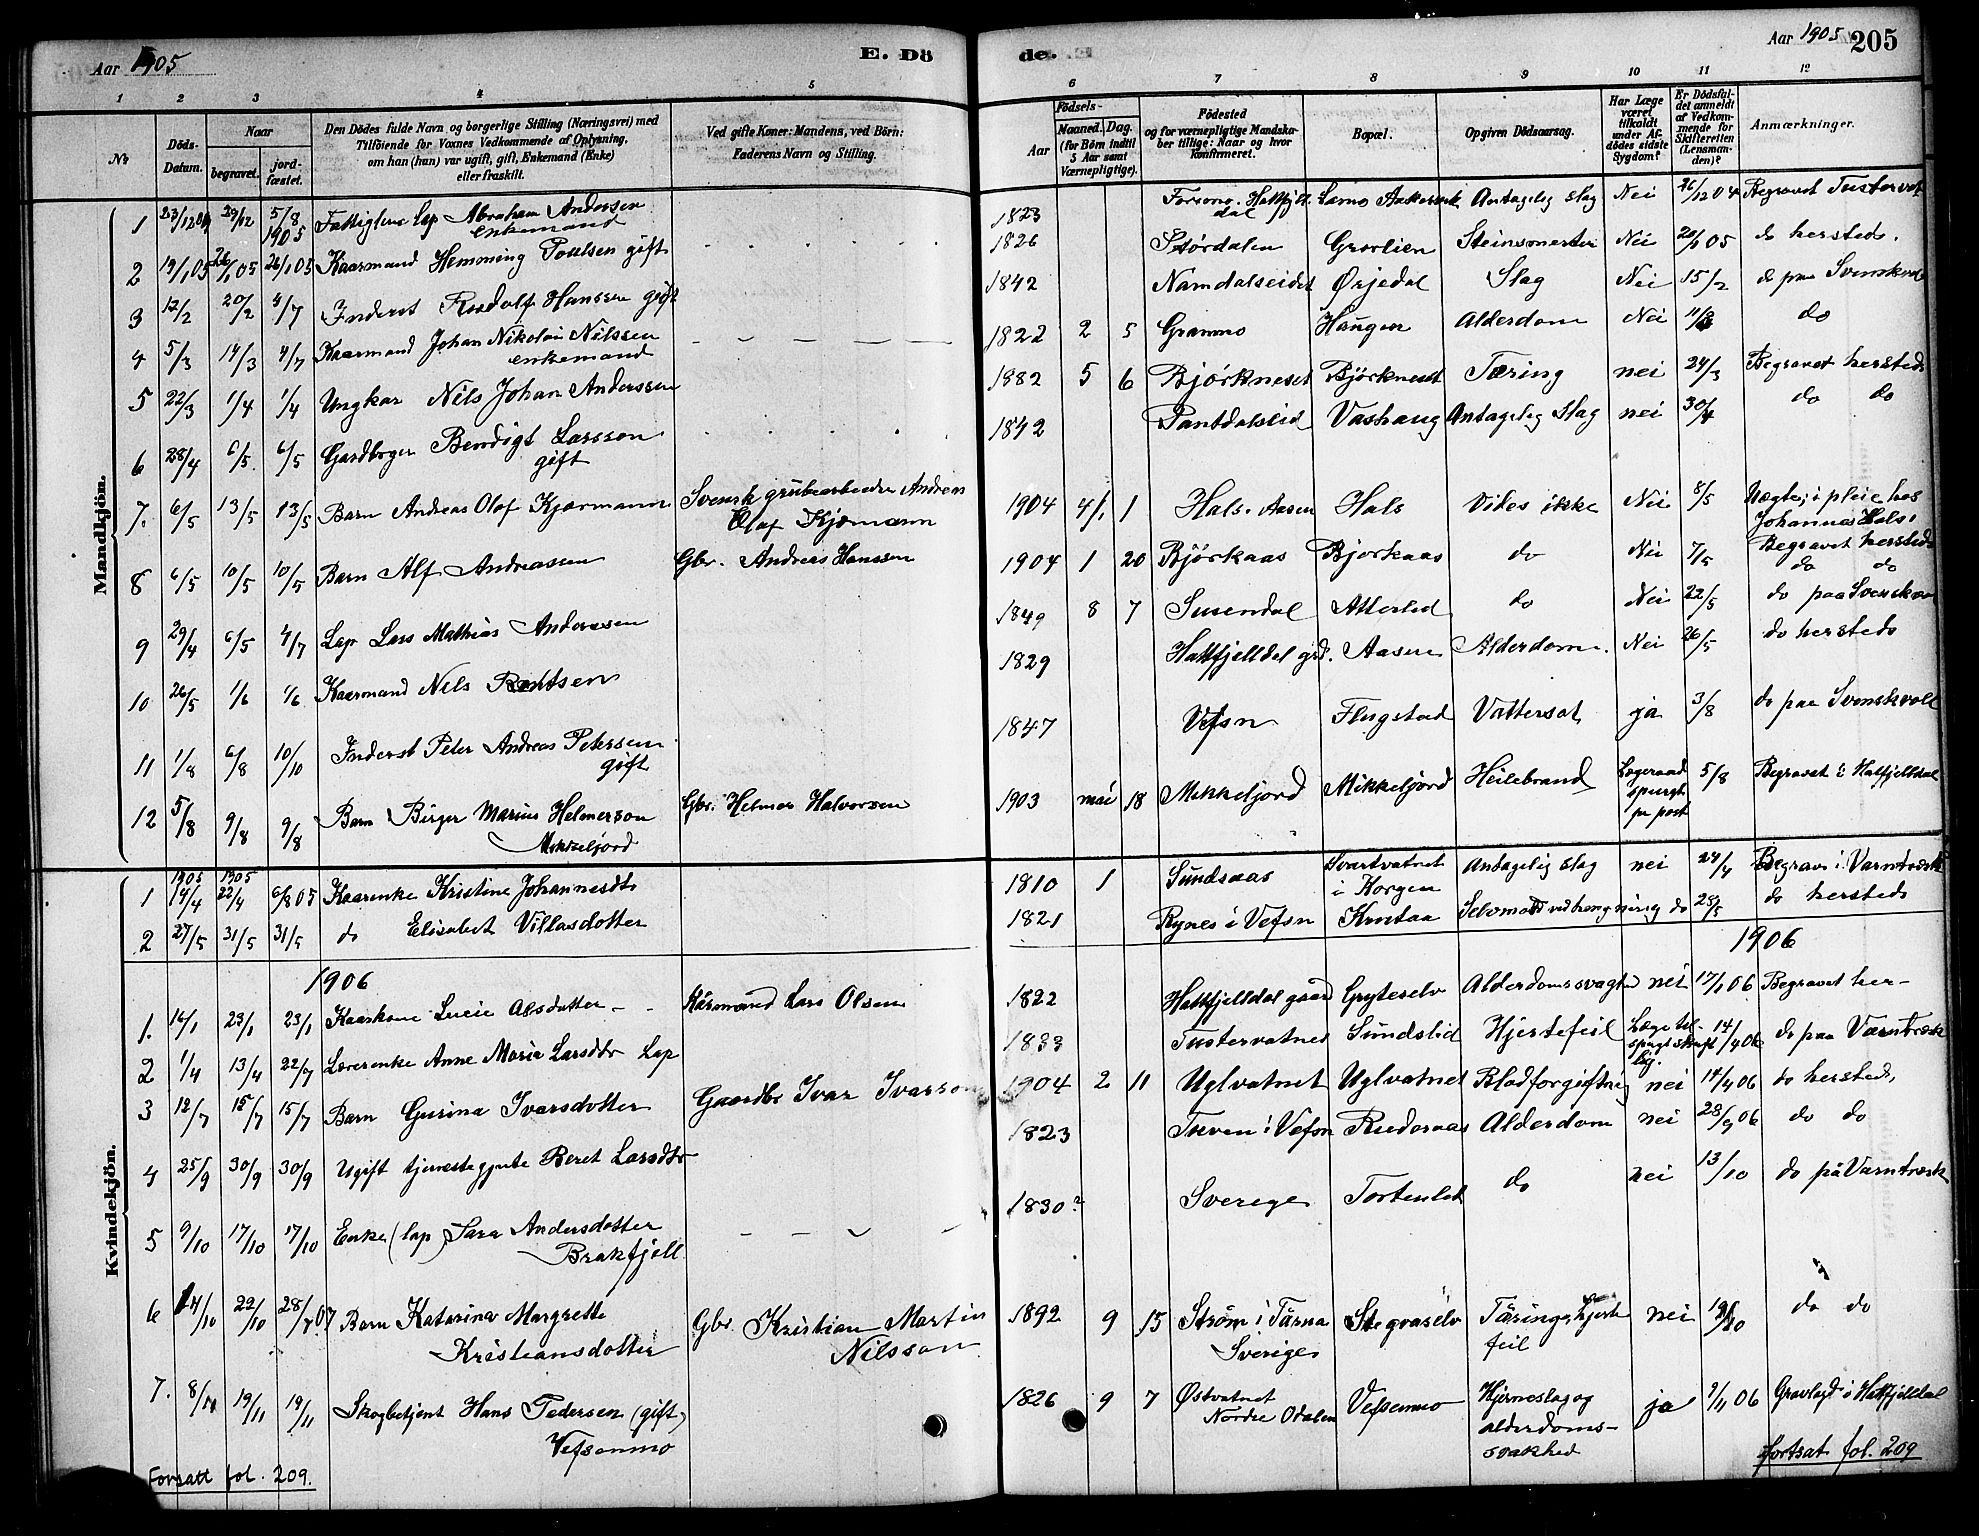 Aar 1905
E. Dö
de.
Aar 1905 205
1 2 3 4 5 6 7 8 9 10 11 12
No
Döds-
Datum.
Naar
begravet.
jord-
fæstet.
Den Dödes fulde Navn og borgerlige Stilling (Næringsvei) med
Tilföiende for Voxnes Vedkommende af Oplysning,
om han (hun) var ugift, gift, Enkemand (Enke)
eller fraskilt.
Ved gifte Koner: Mandens, ved Börn:
Faderens Navn og Stilling.
Födsels-
Aar
Maaned. Dag.
(for Börn indtil
5 Aar samt
Værnepligtige).
Födested
og for værnepligtige Mandska-
ber tillige: Naar og hvor
konfirmeret.
Bopæl.
Opgiven Dödsaarsag.
Har Læge
været
tilkaldt
under Af-
dödes sidste
Sygdom?
Er Dödsfal-
det anmeldt
af Vedkom-
mende for
Skifteretten
(Lensman-
den)?
Anmærkninger.
Mandkjön.
1 23/12 04 29/12 5/8 1905 Fattiglem Lap Abraham Andersen enkemand 1823 Hattfjelldal Antagelig slag Nei 26/12 04 Begravet Tustervat
2 19/1 05 26/1 05 26/1 05 Kaarmand Hemming Poulsen gift 1826 Størdalen Grovlien Nei 20/1 05 do hersteds.
3 12/2 20/2 4/7 Inderst Rudolf Hanssen gift 1842 Namdalseidet Ørjedal Slag Nei 15/2 do paa Svenskvold
4 5/3 14/3 4/7 Kaarmand Johan Nikolai Nilssen enkemand 1822 2 5 Grammo Haugen Alderdom Nei do
5 22/3 1/4 1/4 Ungkar Nils Johan Anderssen 1882 5 6 Bjørkneset Bjørkneset Tæring nei 24/3 Begravet hersteds
6 28/4 6/5 6/5 Gardbrger Bendigt Larsson gift 1842 Pantdalslid Vashaug Antagelig Slag nei 30/4 do do
7. 6/5 13/5 13/5 Barn Andreas Olaf Kjærmann Svensk grubearbeider Andreas Olaf Kjæmann 1904 4/1 1 Hals. Aasen Hals Vides ikke Nei 8/5 Uægte; i pleie hos Johannes Hals. Begravet hersteds
8 6/5 10/5 10/5 Barn Alf Andreassen Gbr. Andreas Hanssen 1904 1 20 Bjørkaas Bjorkaas do Nei 7/5 do do
9 29/4 6/5 4/7 Lap Lars Mathias Anderssen 1849 8 7 Susendal Atterlid do Nei 22/5 do paa Svenskvold
10 26/5 1/6 1/6 Kaarmand Nils Rentsen 1829 Hattfjelldal grd. Aasen Alderdom. Nei 26/5 do hersteds
11 1/8 6/8 10/10 Inderst Peter Andreas Petersen gift 1847 Vefsn Flugstad Vattersot ja 3/8 do paa Svenskvold
12 5/8 9/8 9/8 Barn Birger Marius Helmerson Mikkeljord Gbr. Helmer Halvorsen 1903 mai 18 Mikkeljord Mikkeljord Heilebrand Lægeraad spurgt pr post 5/8 Begravet i Hatfjelldal
Kvindekjön.
1 1905 14/4 1905 22/4 6/8 05 Kaarenke Kristine Johannesdtr 1810 1 Sundsaas Svartvatnet i Korgen Antagelig slag nei 24/4 Begrav i Varntræsk
2 27/5 31/5 31/5 do Elisabet Villasdotter 1821 Rynes i Vefsn Krutaa Selvmord ved hengning do 28/5 do hersteds
1906 1906
1. 14/1 23/1 23/1 Kaarkone Lucie Olsdotter Kårmand Lars Olsen 1822 Hattfjelldal gaard Gryteselv Alderdomssvaghed nei 17/1 06 Begravet her-
2 1/4 13/4 22/7 Lærerenke Anne Maria Larsdtr Lap 1833 Tustervatnet Sundslid Hjertefeil Læge til- spugt skrift lig. 14/4 06 do paa Varntræsk
3 12/7 15/7 15/7 Barn Gurina Ivarsdotter Gaardbr Ivar Ivarsson 1904 2 11 Uglvatnet Uglvatnet Blodforgiftning nei 14/7 06 do hersteds.
4 25/9 30/9 30/9 Ugift tjenestegjente Beret Larsdtr 1823 Tveven i Vefsn Ruderaas Alderdom nei 28/9 06 do do
5 9/10 17/10 17/10 Enke (lap) Sara Andersdotter Brakfjell 1830? Sverige Tortenlid do nei 13/10 do på Varntræsk
6 14/10 22/10 28/7 07 Barn Katarina Margrette Kristiansdotter Gbr Kristian Martin Nilsson 1892 9 15 Strøm i Tärna Sverige Stegvaselv Täring og hjerte feil nei 19/10 do do
7. 8/11 19/11 19/11 Skogbetjent Hans Pedersen (gift) Vefsenmo 1826 9 7 Østvatnet Nordre Odalen Vefsenmo Hjerneslag og alderdoms- svakhed ja 9/11 06 Gravlagd i Hatfjelldal
Forsatt fol. 209. fortsat fol. 209